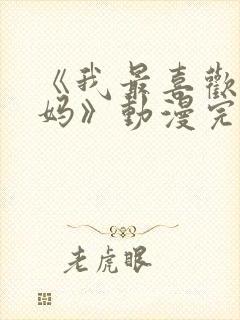 《我最喜歡
妈》動漫完
老虎眼